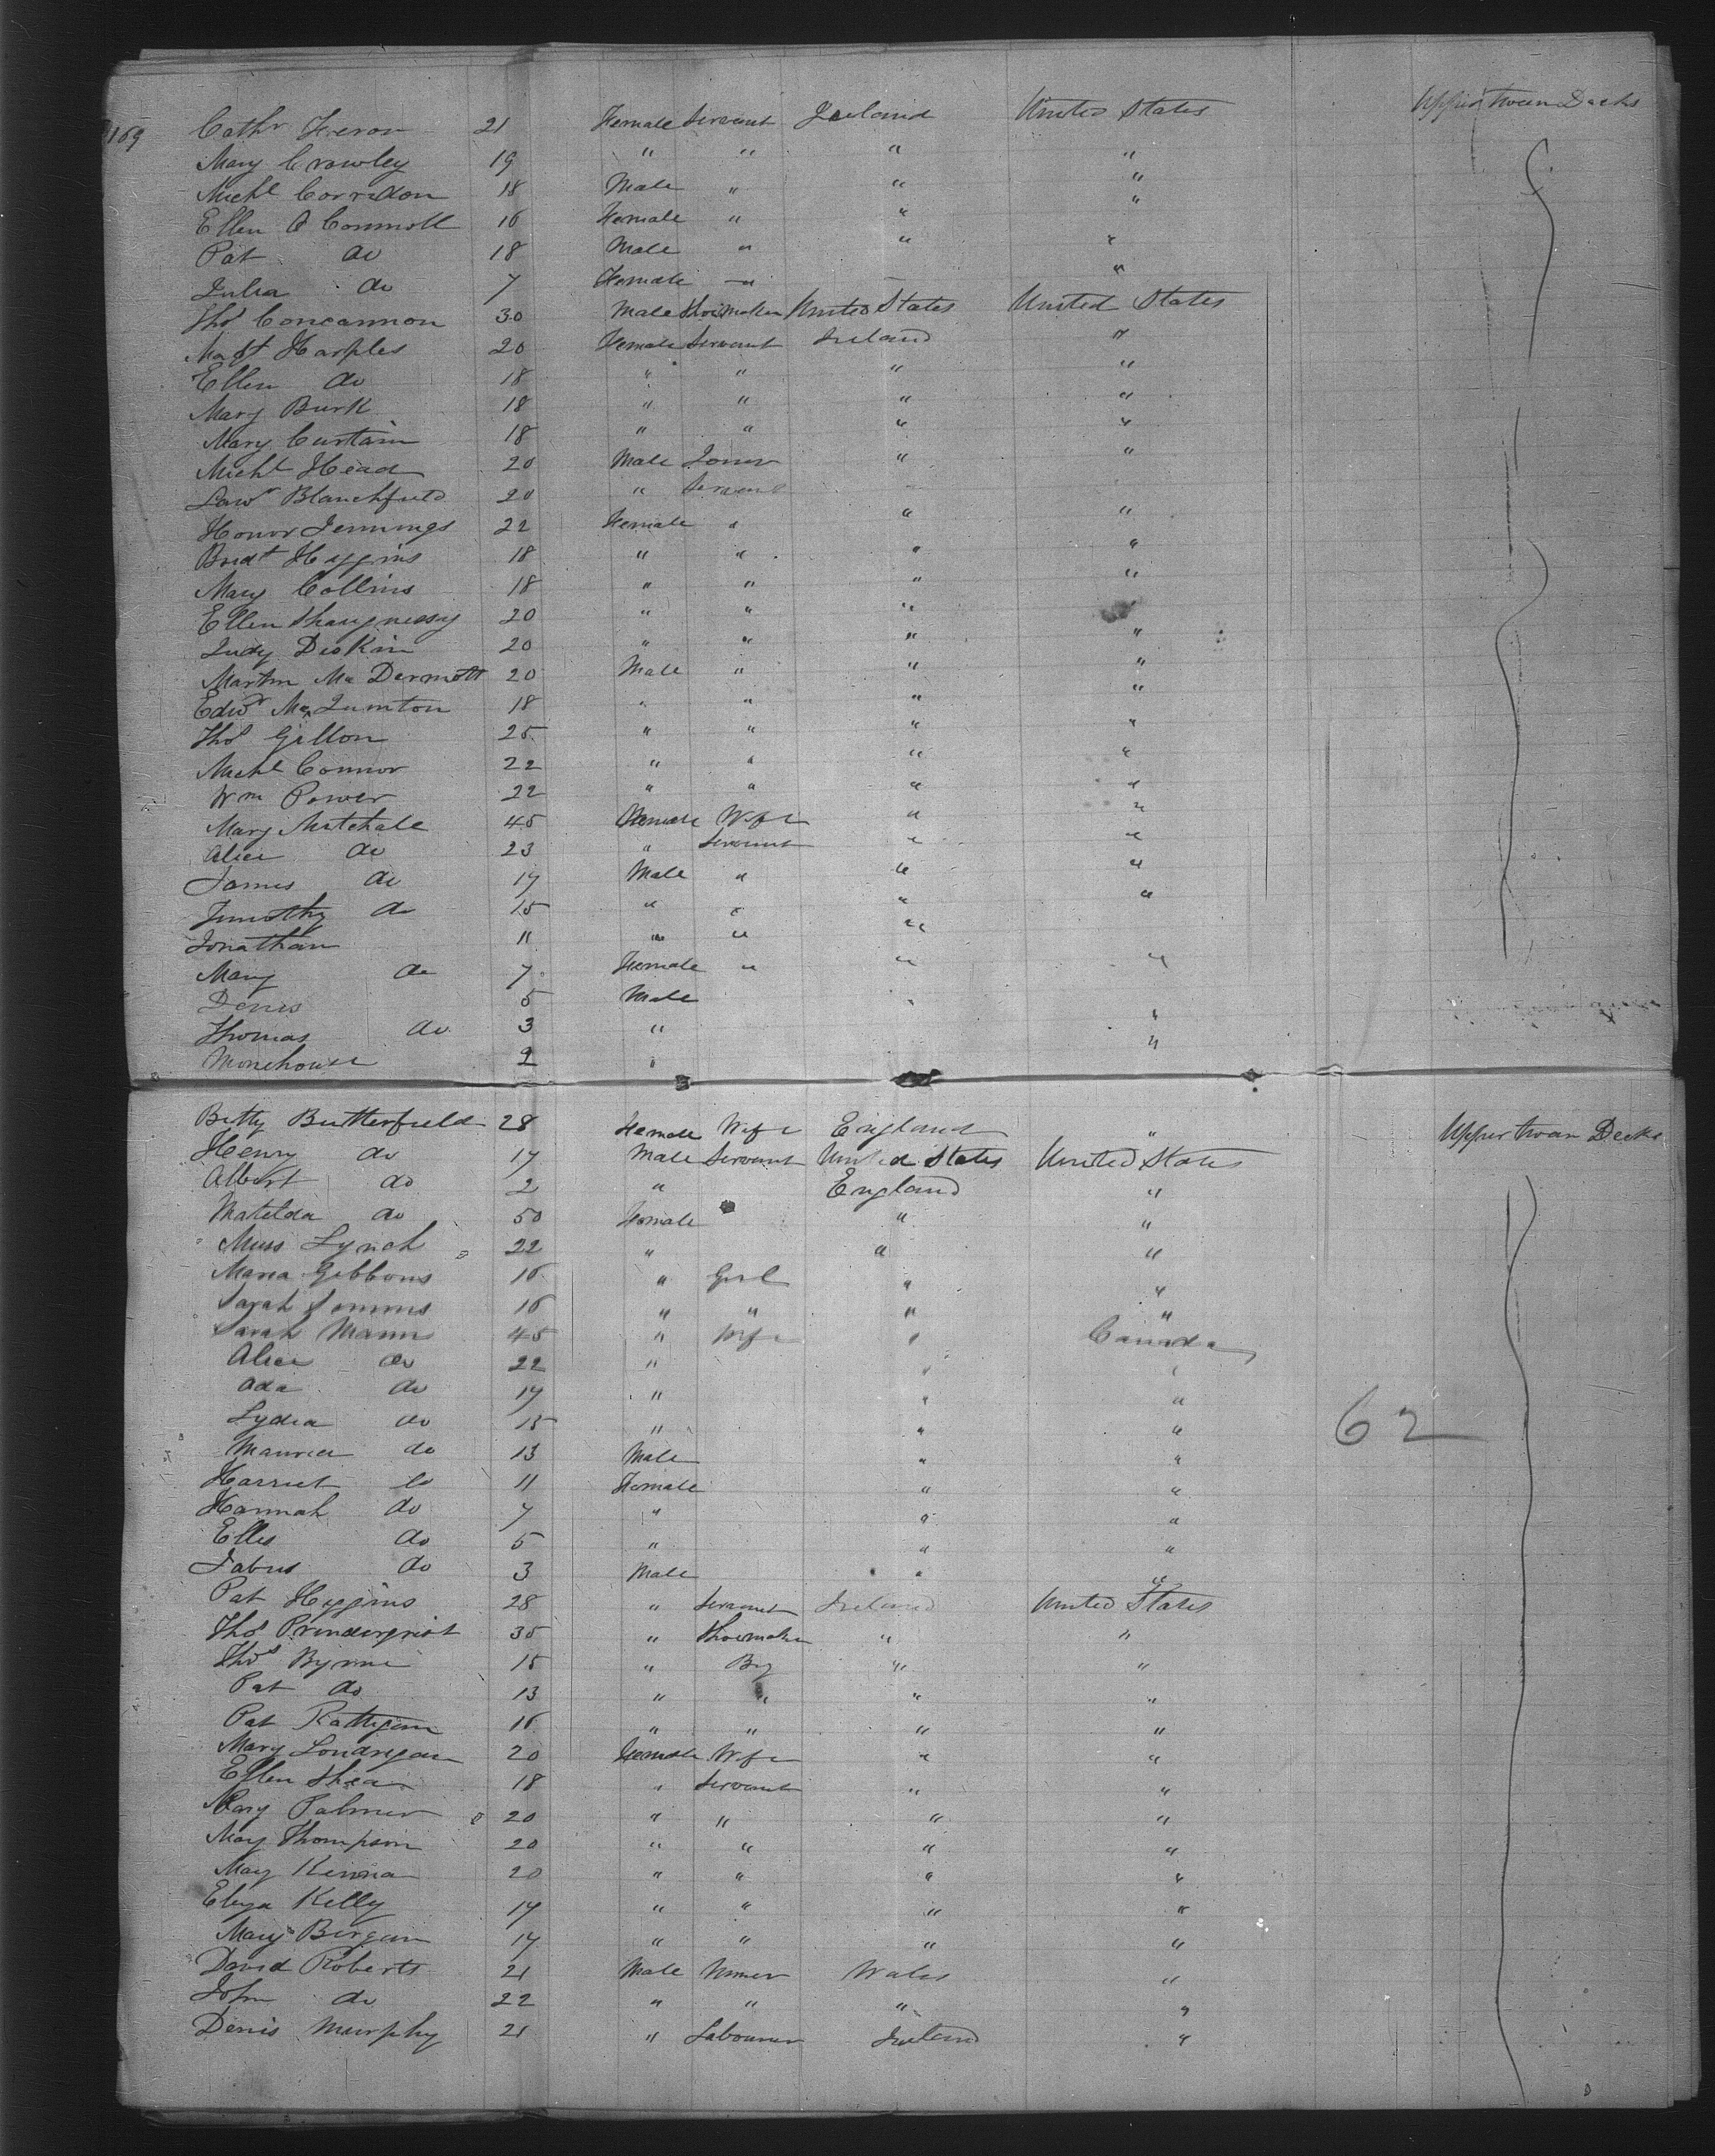 169 Cathr Heron 21 Female Servant Ireland United States Upper Tween Decks
Mary Crowley 19 " " " "
Michl Corridon 18 Male " " "
Ellen O Connell 16 Female " " "
Pat do 18 Male " " "
Julia do 7 Female " "
Thos Concannon 30 Male Shoemaker United States United States
Magt Harples 20 Female Servant Ireland "
Ellen do 18 " " " "
Mary Burk 18 " " " "
Mary Curtain 18 " " " "
Michl Head 20 Male Joiner " "
Lawr Blanchfield 20 " Servant
Honor Jennings 22 Female " " "
Bridt Higgins 18 " " " "
Mary Collins 18 " " " "
Ellen Shaugnessy 20 " " "
Judy Diskin 20 " " " "
Martin Mc Dermott 20 Male " " "
Edwd Mc Quinton 18 " " " "
Thos Gillon 25 " " " "
Michl Connor 22 " " " "
Wm Power 22 " " " "
Mary Mitchale 45 Female Wife " "
Alice do 23 " Servant " "
James do 17 Male " " "
Timothy do 15 " " " "
Jonathan 11 " " "
Mary do 7 Female " " "
Denis 5 Male
Thomas do 3 " "
Monehouse 2 " "
Betty Butterfield 28 Female Wife England " Upper Tween Decks
Henry do 17 Male Servant United States United States
Albert do 2 " England "
Matelda do 50 Female " "
Miss Lynch 22 " " "
Maria Gibbons 16 " Girl " "
Sarah Simms 16 " " " "
Sarah Mann 45 " Wife " Canada
Alice do 22 " " "
Ada do 17 " " "
Lydia do 15 " " "
62
Maurice do 13 Male " "
Harriet do 11 Female " "
Hannah do 7 " " "
Elles do 5 " " "
Jabus do 3 Male " "
Pat Higgins 28 " Servant Ireland United States
Thos Prindergrist 35 " Shoemaker " "
Thos Byrne 15 " Boy " "
Pat do 13 " " " "
Pat Rattigan 16 " " " "
Mary Londrigan 20 Female Wife " "
Ellen Shea 18 " Servant " "
Mary Palmer 20 " " " "
Mary Thompson 20 " " " "
Mary Kenna 20 " " " "
Eliza Kelly 17 " " " "
Mary Bergan 17 " " " "
David Roberts 21 Male Miner Wales "
John do 22 " " " "
Denis Murphy 21 " Labourer Ireland "